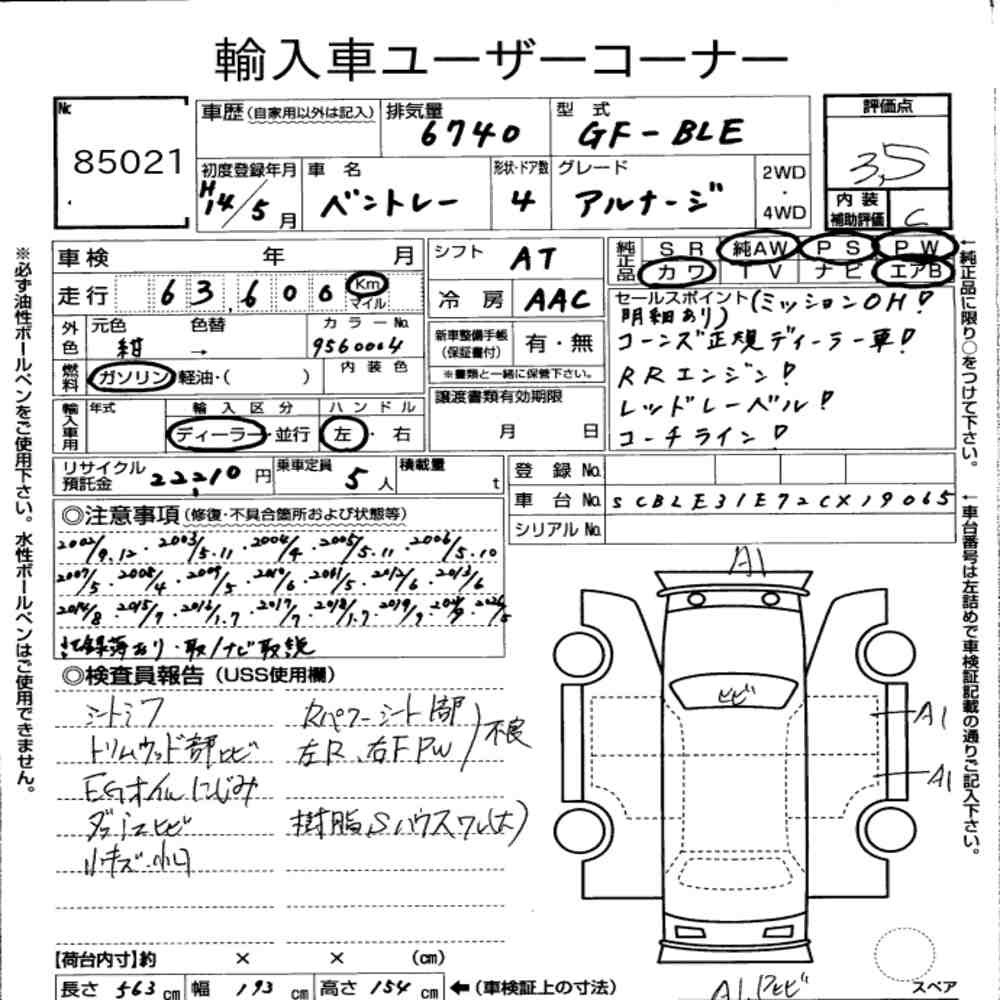 輸入車ユーザーコーナー
No. 85021
車歴 (自家用以外は記入)
排気量 6740
型式 GF-BLE
評価点 3.5
初度登録年月 H14/5月
車名 ベントレー
形状・ドア数 4
グレード アルナージ
2WD・4WD
内装補助評価 C
車検 年 月
シフト AT
純正品 SR 純AW PS PW
カワ TV ナビ エアB
走行 63,606 Km マイル
冷房 AAC
セールスポイント(ミッションOH!
明細あり)
コーンズ正規ディーラー車!
RRエンジン!
レッドレーベル!
コーチライン!
外色 元色 紺 色替 → カラーNo. 9560004
新車整備手帳(保証書付) 有・無
※書類と一緒に保管下さい。
燃料 ガソリン 軽油・( ) 内装色
譲渡書類有効期限 月 日
輸入車用 年式 輸入区分 ディーラー・並行 ハンドル 左・右
リサイクル預託金 22,210円 乗車定員 5人 積載量 t
登録No.
車台No. SCBLE31E72CX19065
シリアルNo.
◎注意事項(修復・不具合箇所および状態等)
2002/9.12・2003/5.11・2004/4・2005/5.11・2006/5.10
2007/5・2008/4・2009/5・2010/6・2011/5・2012/6・2013/6
2014/8・2015/7・2016/1.7・2017/7・2018/1.7・2019/7
記録簿あり・取/ナビ取説
◎検査員報告(USS使用欄)
シートシワ
トリムウッド部ヒビ
EGオイルにじみ
ダッシュヒビ
小キズ・小凹
Rパワーシート1部
左R、右FPW
不良
樹脂、Sハウスワレ(大)
A1
ヒビ
A1
A1
A1、Pヒビ
スペア
【荷台内寸】約 × × (cm)
長さ 563cm 幅 193cm 高さ 154cm ←(車検証上の寸法)
※必ず油性ボールペンをご使用下さい。水性ボールペンはご使用できません。
←純正品に限り○をつけて下さい。
←車台番号は左詰めで車検証記載の通りご記入下さい。